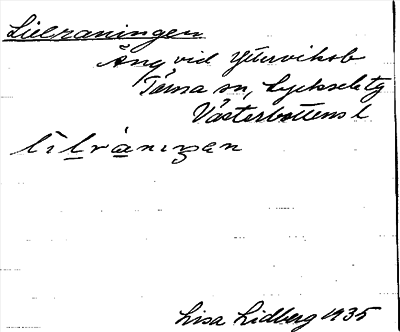 Lielraningen
Äng vid Yttervik ob
Tärna sn, Lycksele tg
Västerbottens l
lìlrànıŋan
Lisa Lidberg 1935